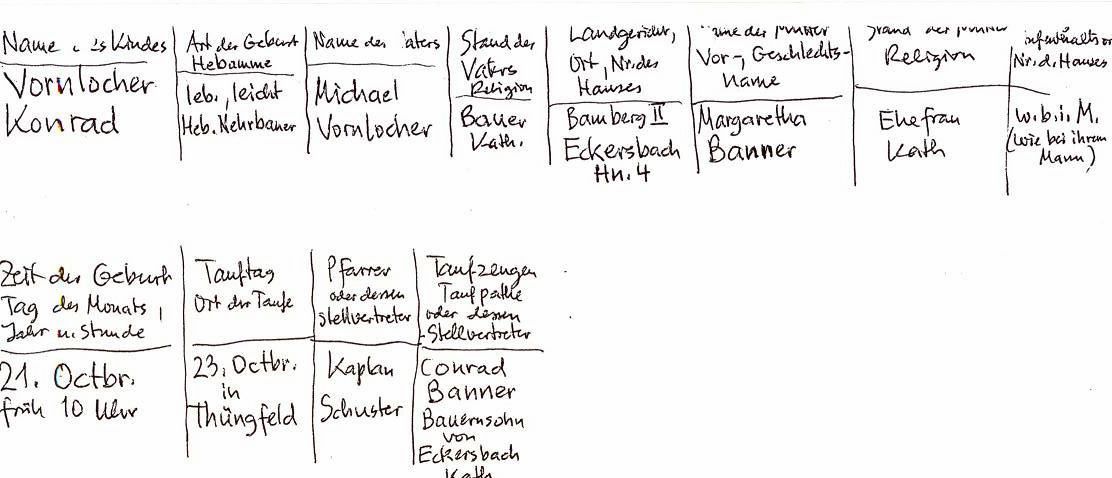 Name des Kindes
Vornlocher
Konrad
Art der Geburt
Hebamme
leb., leicht
Heb. Kehrbauer
Name des Vaters
Michael
Vornlocher
Stand des
Vaters
Religion
Bauer
Kath.
Landgericht,
Ort, Nr. des
Hauses
Bamberg II
Eckersbach
Hn. 4
Name der Mutter
Vor-, Geschlechts-
name
Margaretha
Banner
Stand der Mutter
Religion
Ehefrau
Kath
Aufenthaltsor
Nr. d. Hauses
w.b.i. M.
(wie bei ihrem
Mann)
Zeit der Geburt
Tag des Monats,
Jahr u. Stunde
21. Octbr.
früh 10 Uhr
Tauftag
Ort der Taufe
23. Octbr.
in
Thüngfeld
Pfarrer
oder dessen
Stellvertreter
Kaplan
Schuster
Taufzeugen
Taufpathe
oder dessen
Stellvertreter
Conrad
Banner
Bauernsohn
von
Eckersbach
Kath